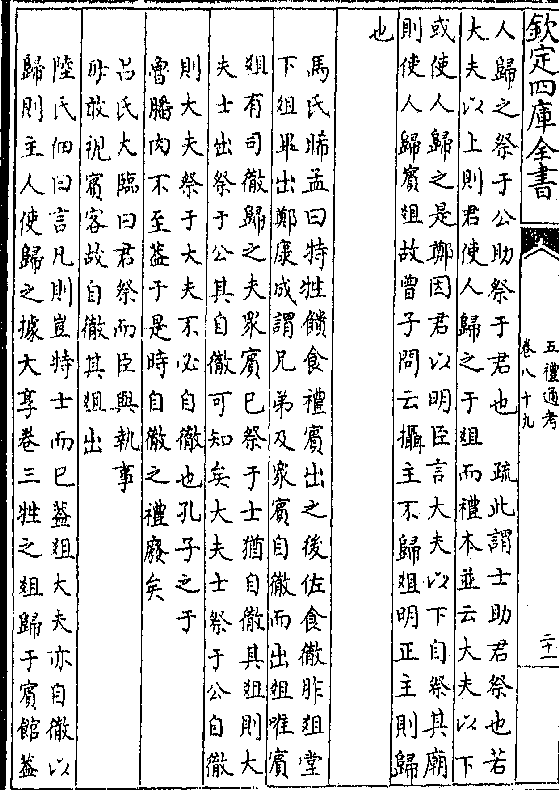 欽定四庫全書
五禮通考
卷八十九
二十一
人歸之祭于公助祭于君也　疏此謂士助君祭也若
大夫以上則君使人歸之于俎而禮本並云大夫以下
或使人歸之是鄭因君以明臣言大夫以下自祭其廟
則使人歸賓俎故曾子問云攝主不歸俎明正主則歸
也
馬氏睎孟曰特牲饋食禮賓出之後佐食徹阼俎堂
下俎畢出鄭康成謂兄弟及衆賓自徹而出俎唯賓
俎有司徹歸之夫衆賓已祭于士猶自徹其俎則大
夫士出祭于公其自徹可知矣大夫士祭于公自徹
則大夫祭于大夫不必自徹也孔子之于
魯膰肉不至蓋于是時自徹之禮廢矣
呂氏大臨曰君祭而臣與執事
毋敢視賓客故自徹其俎出
陸氏佃曰言凡則豈特士而已蓋俎大夫亦自徹以
歸則主人使歸之據大享卷三牲之俎歸于賓館蓋